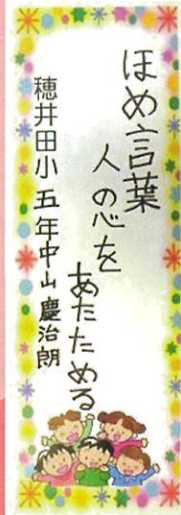 ほめ言葉
人の心を
あたためる
穂井田小五年中山慶治朗